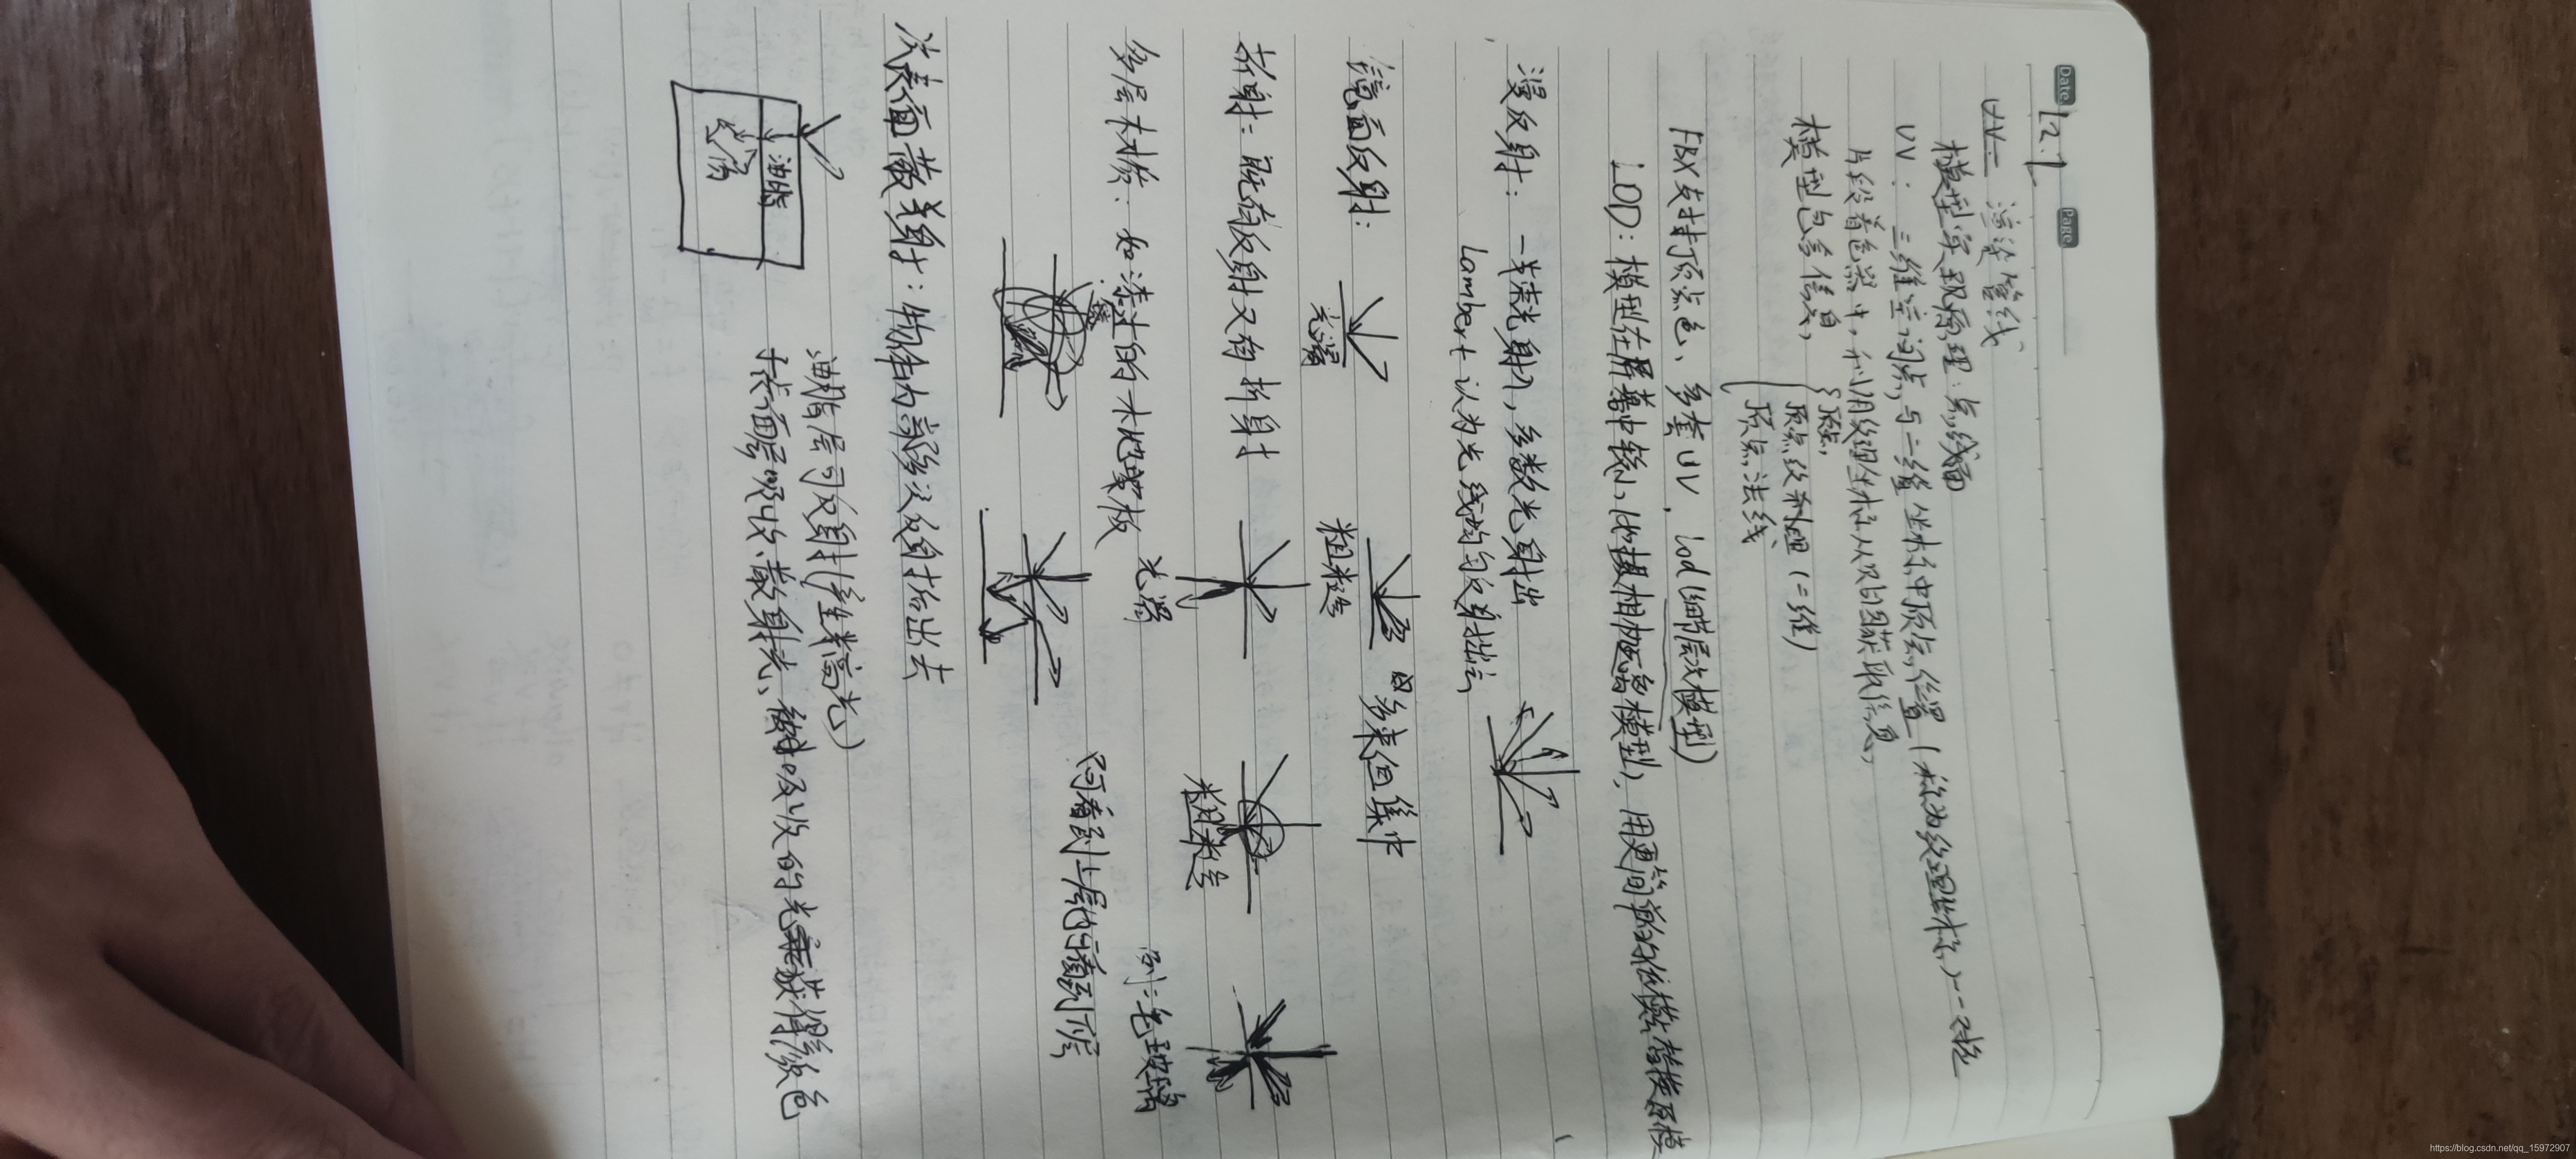 Date 12.1 Page
UV= 渲染管线
模型实现原理:点线面
UV: 三维空间点与二维坐标中顶点位置(称为纹理坐标)--对应
片段着色器中,利用纹理坐标从贴图获取信息,
模型包含信息,
顶点,
顶点纹理(二维)
顶点法线
FBX支持顶点色、多套UV、lod(细节层次模型)
LOD:模型在屏幕中较小,用更简单的低模替换高模
漫反射:一束光射入,多数光射出
Lambert 认为光线均匀反射
镜面反射:
光滑
粗糙
多束但集中
折射:既有反射又有折射
光滑
粗糙
例:毛玻璃
多层材质:如漆过的木地板
可看到上层
次表面散射:物体内部多次反射后出去
油脂
皮层
油脂层可反射(产生高光)
表面层吸收、散射光、吸收的光获得颜色
https://blog.csdn.net/qq_15972907